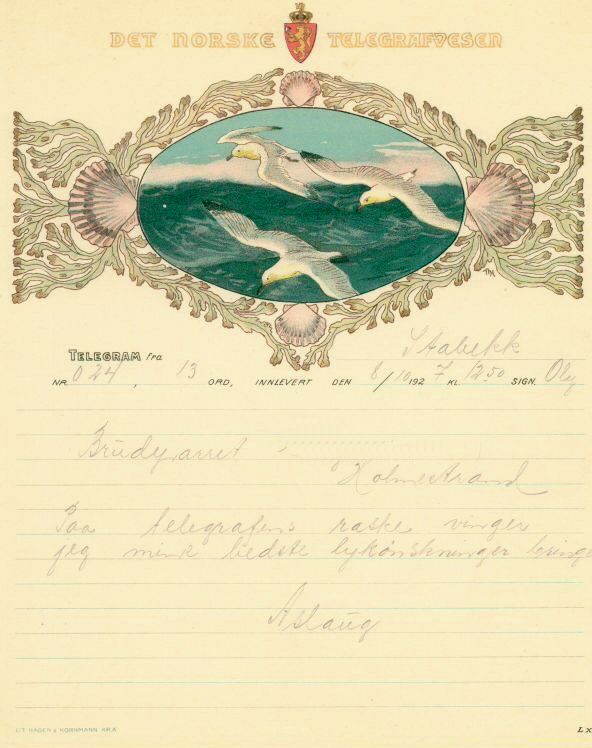 DET NORSKE TELEGRAFVESEN
TELEGRAM fra Stabekk
NR. 024, 13 ORD, INNLEVERT DEN 8/10 1927 KL. 12.50 SIGN.
Brudeparret
Holmestrand
Paa telegrafens raske vinger
jeg mine bedste lykønskninger bringer
Aslaug
LIT. HAGEN & KORNMANN. KR.A
Lx